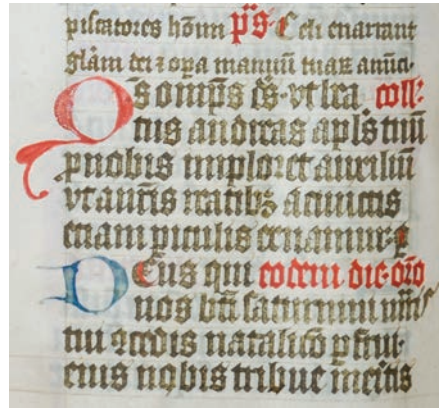 piscatores hom̄m p̄s Celi enarrant
gl̄am dei ⁊ op̄a manuū tuaꝝ anūci
Qs omp̄s d̄s vt b̄a coll̄
tus andreas apl̄s tuū
ꝓ nobis imploret auxiliū
vt a nr̄is reatibꝫ
etiam ꝑiculis eruamur ꝑ
DEus qui eodem die or̄o
nos bt̄i saturnini
tui ꝯcedis natalicō ꝑfrui
eius nobis tribue meritis